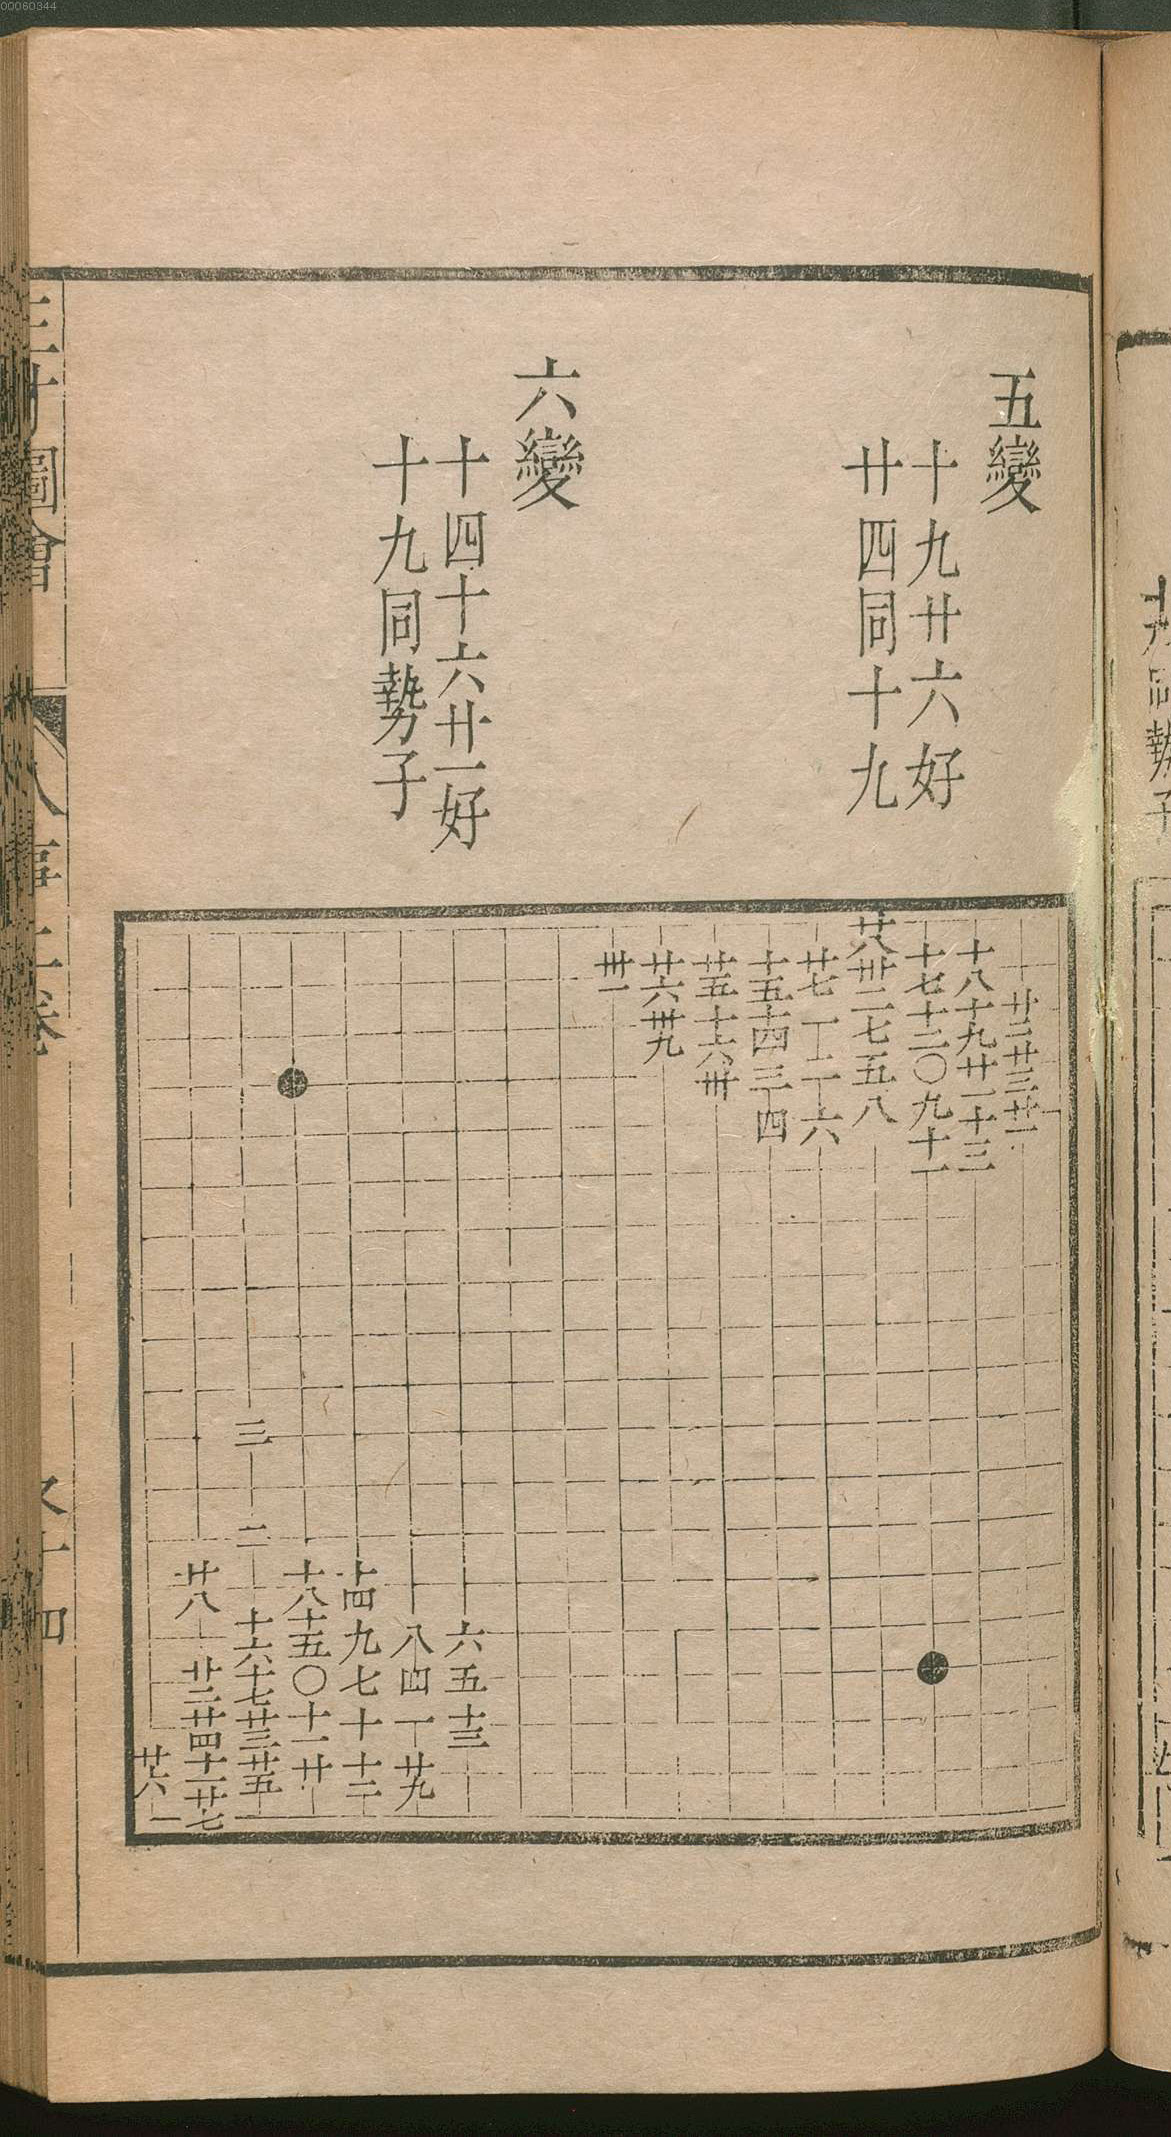 00060344
五變
十九廿六好
廿四同十九
六變
十四十六廿一好
十九同勢子
廿二廿三廿一
十八十九廿一十三
十七十二〇九十一
廿八卅二七五八
廿七一二一六
十五十四三四
廿五十六卅
廿六廿九
卅一
六五十三
八四一廿九
十四九七十十二
十八十五〇十一廿
三二十六十七廿三廿五
廿八廿二廿四十一廿七
廿六
三才圖會
人事二卷
同勢子